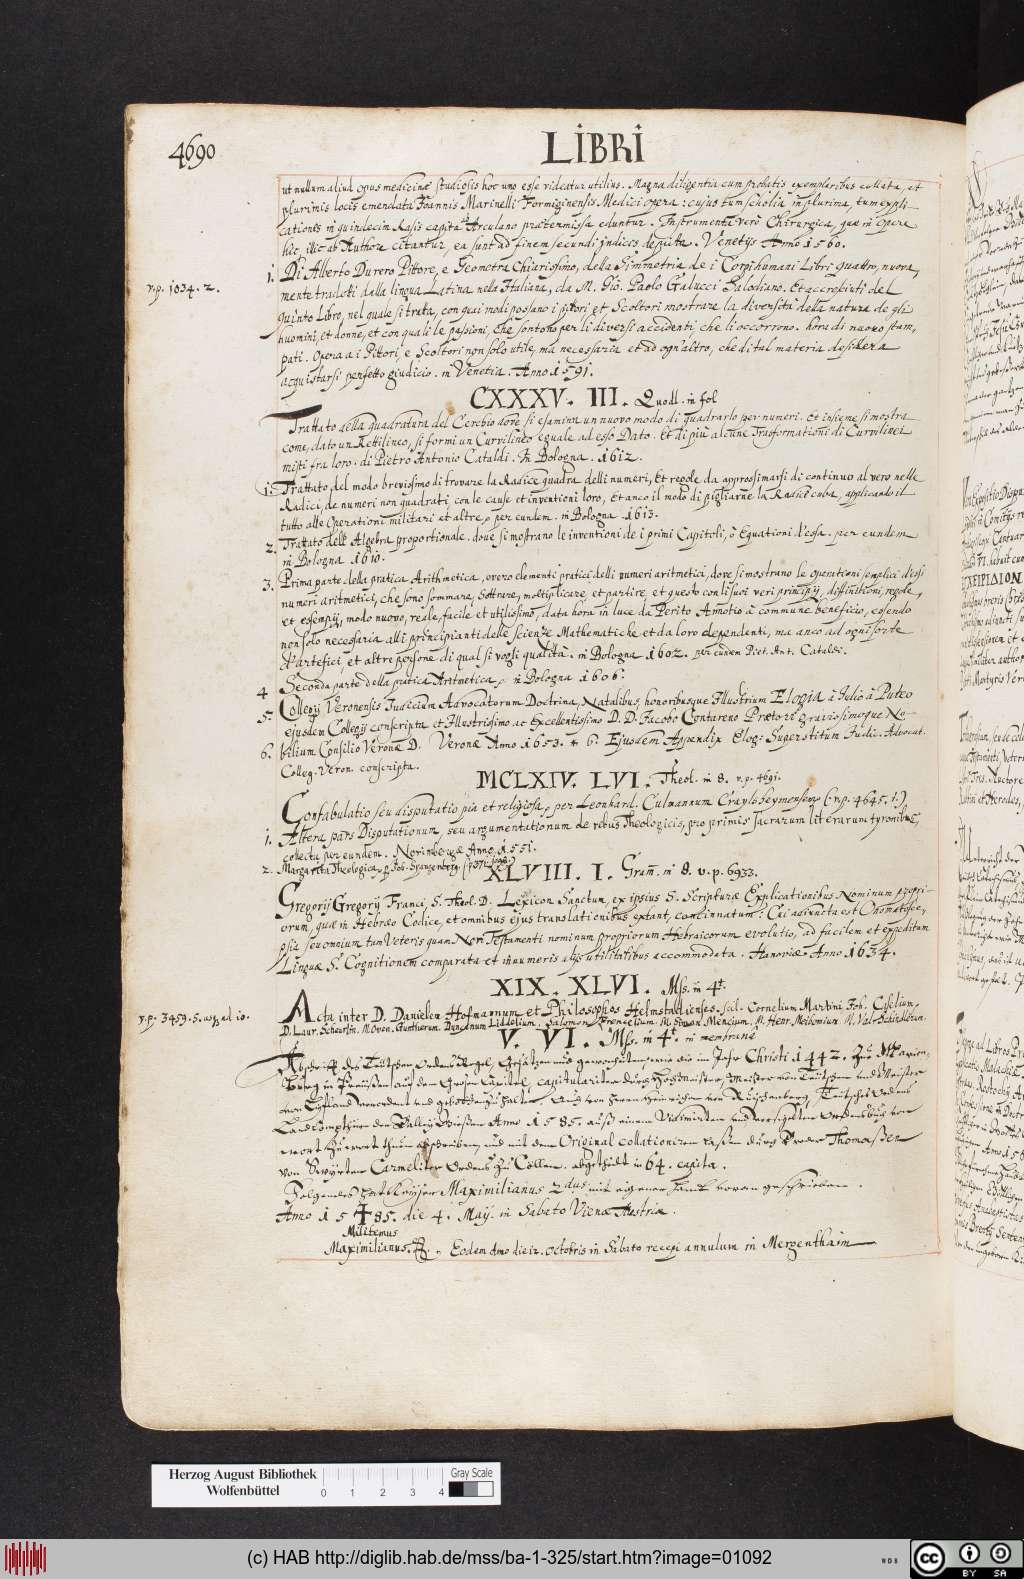 4690
LIBRI
ut nullum aliud opus medicinæ studiosis hoc uno esse videatur utilius. Magna diligentia cum probatis exemplaribus collata, et
plurimis locis emendata Joannis Marinelli Formiginensis Medici opera: cujus tum scholia in plurima, tum expli
cationes in quindecim Rasis capita ab Arculano prætermissa eduntur. Instrumenta verò Chirurgica, quæ in opere
hic, illic ab Authore citantur, ea sunt ad finem secundi indices depicta. Venetijs Anno 1560.
v.p. 1034. 2.
1. Di Alberto Durero Pittore, e Geometra Chiarissimo, della Simmetria de i Corpi humani Libri quattro, nuova,
mente tradotti dalla lingua Latina nella Italiana, da M. Gio. Paolo Galucci Salodiano. Et accresciuti del
quinto Libro, nel quale si tratta, con quai modi possano i pittori et Scoltori mostrare la diversità della natura de gli
huomini, et donne, et con quali le passioni, che sentono per li diversi accidenti che li occorrono. hora di nuovo stam,
pati. Opera a i Pittori, e Scoltori non solo utile, ma necessaria et ad ogn'altro, che di tal materia desidera
acquistarsi perfetto giudicio. in Venetia. Anno 1591.
CXXXV. III. Quodl. in fol
Trattato della quadratura del Cerchio dove si esamina un nuovo modo di quadrarlo per numeri. Et insieme si mostra
come, dato un Rettilineo, si formi un Curvilineo equale ad esso Dato. Et di più alcune Trasformationi di Curvilinei
misti fra loro. di Pietro Antonio Cataldi. In Bologna. 1612.
1. Trattato del modo brevissimo di trovare la Radice quadra delli numeri, Et regole da approssimarsi di continuo al vero nelle
Radici, de numeri non quadrati con le cause et inventioni loro, Et anco il modo di pigliarne la Radice cuba, applicando il
tutto alle Operationi militari et altre, per eundem. in Bologna. 1613.
2. Trattato dell' Algebra proportionale. dove si mostrano le inventioni de i primi Capitoli, ò Equationi d'essa. per eundem
in Bologna 1610.
3. Prima parte della pratica Arithmetica, overo elementi pratici delli numeri aritmetici, dove si mostrano le operationi semplici d'essi
numeri aritmetici, che sono sommare, Sottrare, moltiplicare et partire, et questo con li suoi veri principij, diffinitioni, regole,
et essempij, modo nuovo, reale, facile et utilissimo, data hora in luce da Perito Annotio à commune beneficio, essendo
non solo necessaria alli principianti delle scienze Mathematiche et da loro dependenti, ma anco ad ogni sorte
d'artefici et altre persone di qual si vogli qualità. in Bologna 1602. per eundem Piet. Ant. Cataldi.
4 Seconda parte della pratica Aritmetica, in Bologna 1606.
5. Collegij Veronensis Judicum Advocatorum Doctrina, Natalibus, honoribusque Illustrium Elogia à Julio à Puteo
ejusdem Collegij conscripta et Illustrissimo ac Excellentissimo D. D. Jacobo Contareno Prætori gravissimoque No-
6. bilium Consilio Veronæ D. Veronæ Anno 1653. + 6. Ejusdem Appendix Elog: Superstitum Judic. Advocat.
Colleg. Veron. conscripta.
MCLXIV. LVI. Theol. in 8. v.p. 4691.
Confabulatio seu disputatio pia et religiosa, per Leonhard. Culmannum Craylsheymensem (v.p. 4645.1.)
1. Altera pars Disputationum, seu argumentationum de rebus Theologicis, pro primis sacrarum literarum tyronibus,
collecta per eundem. Norimbergæ Anno 1551.
2. Margarita Theologica, p. Joh. Spangenberg.
XLVIII. I. Gram̄. in 8. v.p. 6933.
Gregorij Gregorij Franci, S. Theol. D. Lexicon Sanctum, ex ipsius S. Scripturæ Explicationibus Nominum propri-
orum, quæ in Hebræo Codice, et omnibus ejus translationibus extant, concinnatum: Cui adjuncta est Onomatosce,
psia seu omnium tam Veteris quam Novi Testamenti nominum propriorum Hebraicorum evolutio, ad facilem et expeditam
Linguæ S. Cognitionem comparata et innumeris alijs utilitatibus accommodata. Hanoviæ Anno 1634.
XIX. XLVI. Mss. in 4t.
v.p. 3459. 5. usq ad 10.
Acta inter D. Danielem Hofmannum et Philosophos Helmstadienses. scil. Cornelium Martini Joh. Caselium,
D. Laur. Scheurlin. M. Oven. Guntherum, Duncanum Liddelium, Salomon Frencelium, M. Simon. Mencium, M. Henr. Meibomium
V. VI. Mss. in 4t. in membrana
Abschrifft des Teutschen Ordens Regel, Gesätzen und gewonheiten wie die im Jahr Christi 1442. Zu Marien,
burg in Preüßen auf dem Großen Capitel, capitulariter durch Hochmeister, Meister von Teütschen und Meister
Landcompthur der Balley Anno 1585. auß einem Vidimirten
von wort zu wort thun abschreiben, und mit dem Original collationiren laßen durch Bruder Thomaßen
von Carmeliter Ordens zu Cöllen. abgetheilt in 64. capita.
Folgendes hat Kayser Maximilianus 2dus mit eigener handt voran geschrieben.
Anno 15 + 85. die 4. Maij. in Sabato Vienæ Austriæ.
Militemus
Maximilianus. Eodem anno die 12. octobris in Sabato recepi annulum in Mergenthaim
Herzog August Bibliothek
Wolfenbüttel
0 1 2 3 4
Gray Scale
(c) HAB http://diglib.hab.de/mss/ba-1-325/start.htm?image=01092
WDB
cc BY SA